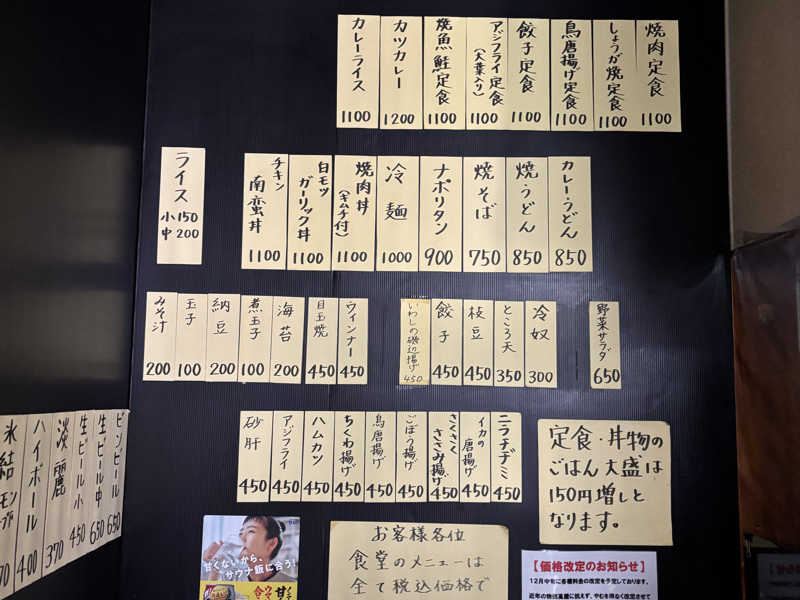 焼肉定食 1100
しょうが焼定食 1100
鳥唐揚げ定食 1100
餃子定食 1100
アジフライ定食 (大葉入り) 1100
焼魚鮭定食 1100
カツカレー 1200
カレーライス 1100
カレーうどん 850
焼うどん 850
焼そば 750
ナポリタン 900
冷麺 1000
焼肉丼 (キムチ付) 1100
白モツガーリック丼 1100
チキン南蛮丼 1100
ライス
小 150
中 200
野菜サラダ 650
冷奴 300
ところ天 350
枝豆 450
餃子 450
いわしの磯辺揚げ 450
ウィンナー 450
目玉焼 450
海苔 200
煮玉子 100
納豆 200
玉子 100
みそ汁 200
ニラチヂミ 450
イカの唐揚げ 450
さくさくささみ揚げ 450
ごぼう揚げ 450
鳥唐揚げ 450
ちくわ揚げ 450
ハムカツ 450
アジフライ 450
砂肝 450
ビンビール 650
生ビール中 650
生ビール小 450
淡麗 370
ハイボール 400
氷結
定食・丼物の
ごはん大盛は
150円増しと
なります。
お客様各位
食堂のメニューは
全て税込価格で
甘くないから、
サウナ飯に合う!
【価格改定のお知らせ】
12月中旬に各種料金の改定を予定しております。
近年の物価高騰に抗えず、やむを得なく改定させて